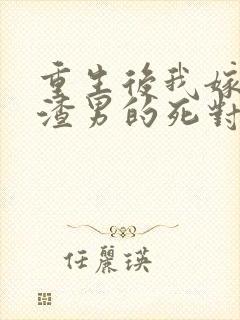 重生後我嫁
渣男的死對
任麗瑛